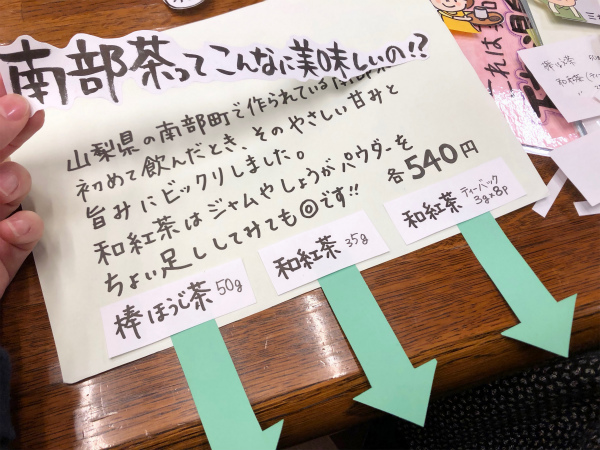 南部茶ってこんなに美味しいの!?
山梨県の南部町で作られている
初めて飲んだとき、そのやさしい甘みと
旨みにビックリしました。
和紅茶はジャムやしょうがパウダーを
ちょい足ししてみても◎です!!
各540円
棒ほうじ茶 50g
和紅茶 35g
和紅茶 ティーバック 3g×8p
これは
棒ほうじ茶
和紅茶